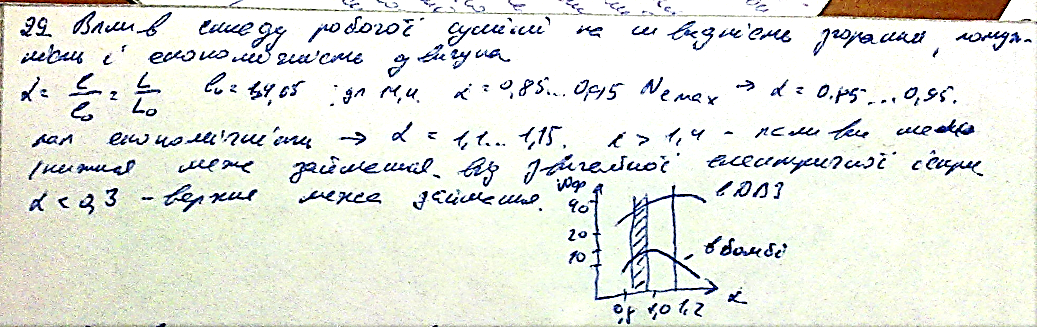 29 Вплив складу робочої суміші на швидкість згорання, потуж-
ність і економічність двигуна
α = l/l₀ = L/L₀ l₀ = 14,95 α = 0,85...0,95 Ne max → α = 0.85...0,95.
економічність → α = 1,1...1,15. α > 1,4 -
нижня межа займання від звичайної електричної іскри
α < 0,3 - верхня межа займання.
в ДВЗ
40
20
10
в бомбі
1,0 1,2 α